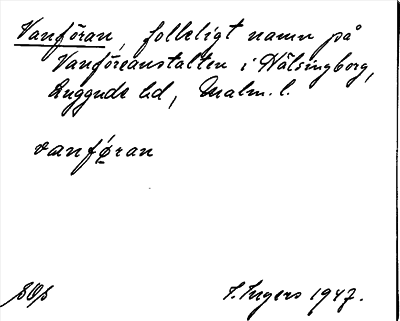 Vanföran, folkligt namn på
Vanföreanstalten i Hälsingborg,
Luggude hd, Malm. l.
vanfø̨ran
I. Ingers 1947.